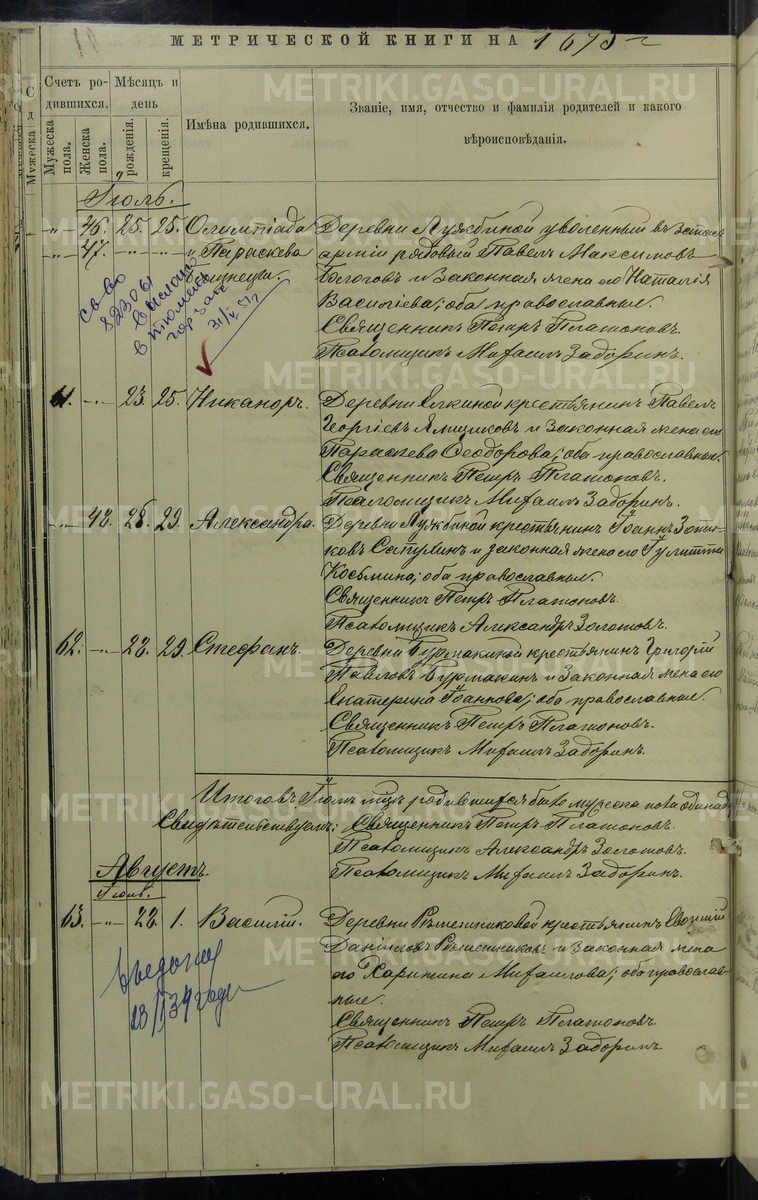 МЕТРИЧЕСКОЙ КНИГИ НА
METRIKI.GASO-URAL.RU
Счетъ родившихся.
Мужеска пола.
Женска пола.
Мѣсяцъ и день
рожденія.
крещенія.
Имена родившихся.
Званіе, имя, отчество и фамилія родителей и какого вѣроисповѣданія.
Іюль.
-„- 46. 25. 25. Олимпіада Деревни Лужбиной уволенный въ
-„- 47. -„- -„- и Параскева арміи рядовый Павелъ Максимовъ
близнецы. и законная жена его Наталія
Василіева; оба православные.
Священникъ Петръ Платоновъ.
Псаломщикъ Михаилъ Задоринъ.
св-во
выслано
в Тюмень
гор. загс
61. -„- 23 25. Никаноръ. Деревни Елкиной крестьянинъ Павелъ
Георгіевъ Ямщиковъ и законная жена его
Параскева Ѳеодорова; оба православные.
Священникъ Петръ Платоновъ.
Псаломщикъ Михаилъ Задоринъ.
-„- 48. 28. 29. Александра. Деревни Лужбиной крестьянинъ Іоаннъ
Сапулинъ и законная жена его Іулиттa
Косьмина; оба православные.
Священникъ Петръ Платоновъ.
Псаломщикъ Александръ Золотовъ.
62. -„- 28. 29. Стефанъ. Деревни Бурмакиной крестьянинъ Григорій
Павловъ Бурмакинъ и законная жена его
Екатерина Іоаннова; оба православные.
Священникъ Петръ Платоновъ.
Псаломщикъ Михаилъ Задоринъ.
Итого въ Іюлѣ мцѣ родившихся было мужеска пола
Свидѣтельствуемъ: Священникъ Петръ Платоновъ.
Псаломщикъ Александръ Золотовъ.
Псаломщикъ Михаилъ Задоринъ.
Августъ.
Іюль.
63. -„- 28. 1. Василій. Деревни Рѣшетниковой крестьянинъ Евѳимій
Даніиловъ Рѣшетниковъ и законная жена
его Харитина Михаилова; оба православ-
ные.
Священникъ Петръ Платоновъ.
Псаломщикъ Михаилъ Задоринъ.
23/I 34 года